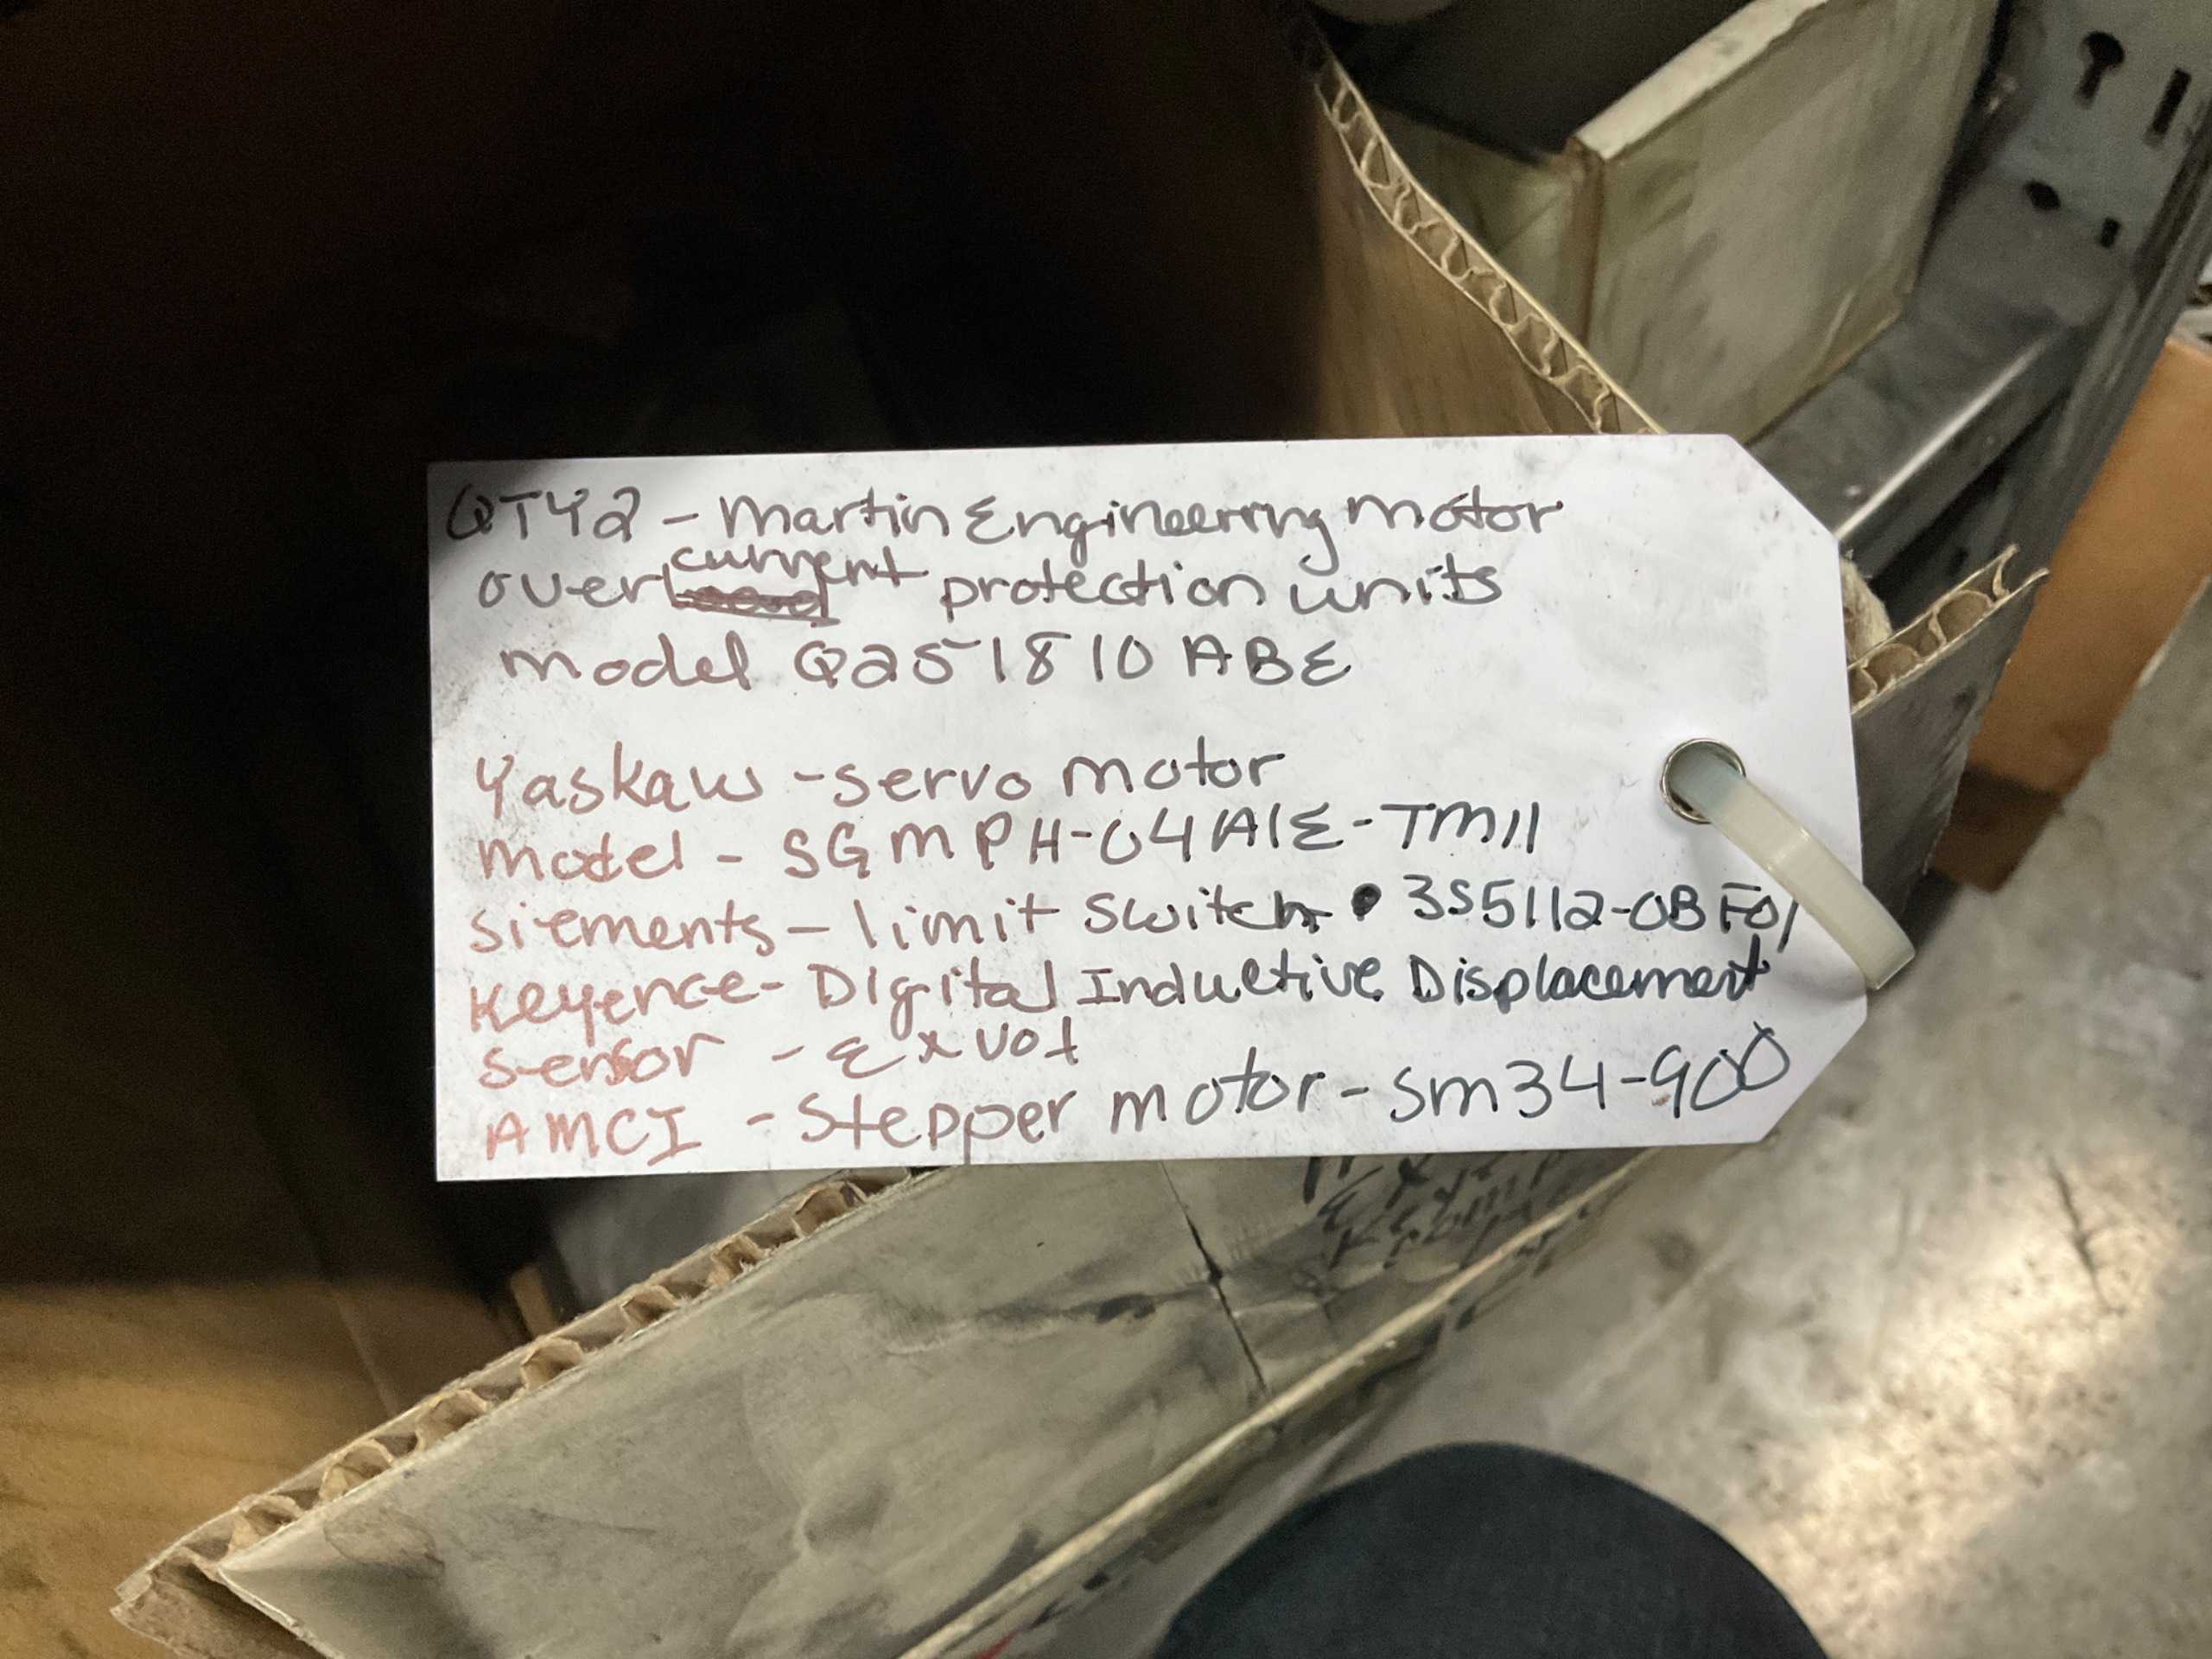 QTY2 - Martin Engineering motor
overcurrent protection units
model Q251810ABE
Yaskaw - servo motor
model - SGMPH-04A1E-TM11
siements - limit switch • 3S5112-0BF01
Keyence - Digital Inductive Displacement
sensor - Ex V01
AMCI - Stepper motor - Sm34-900